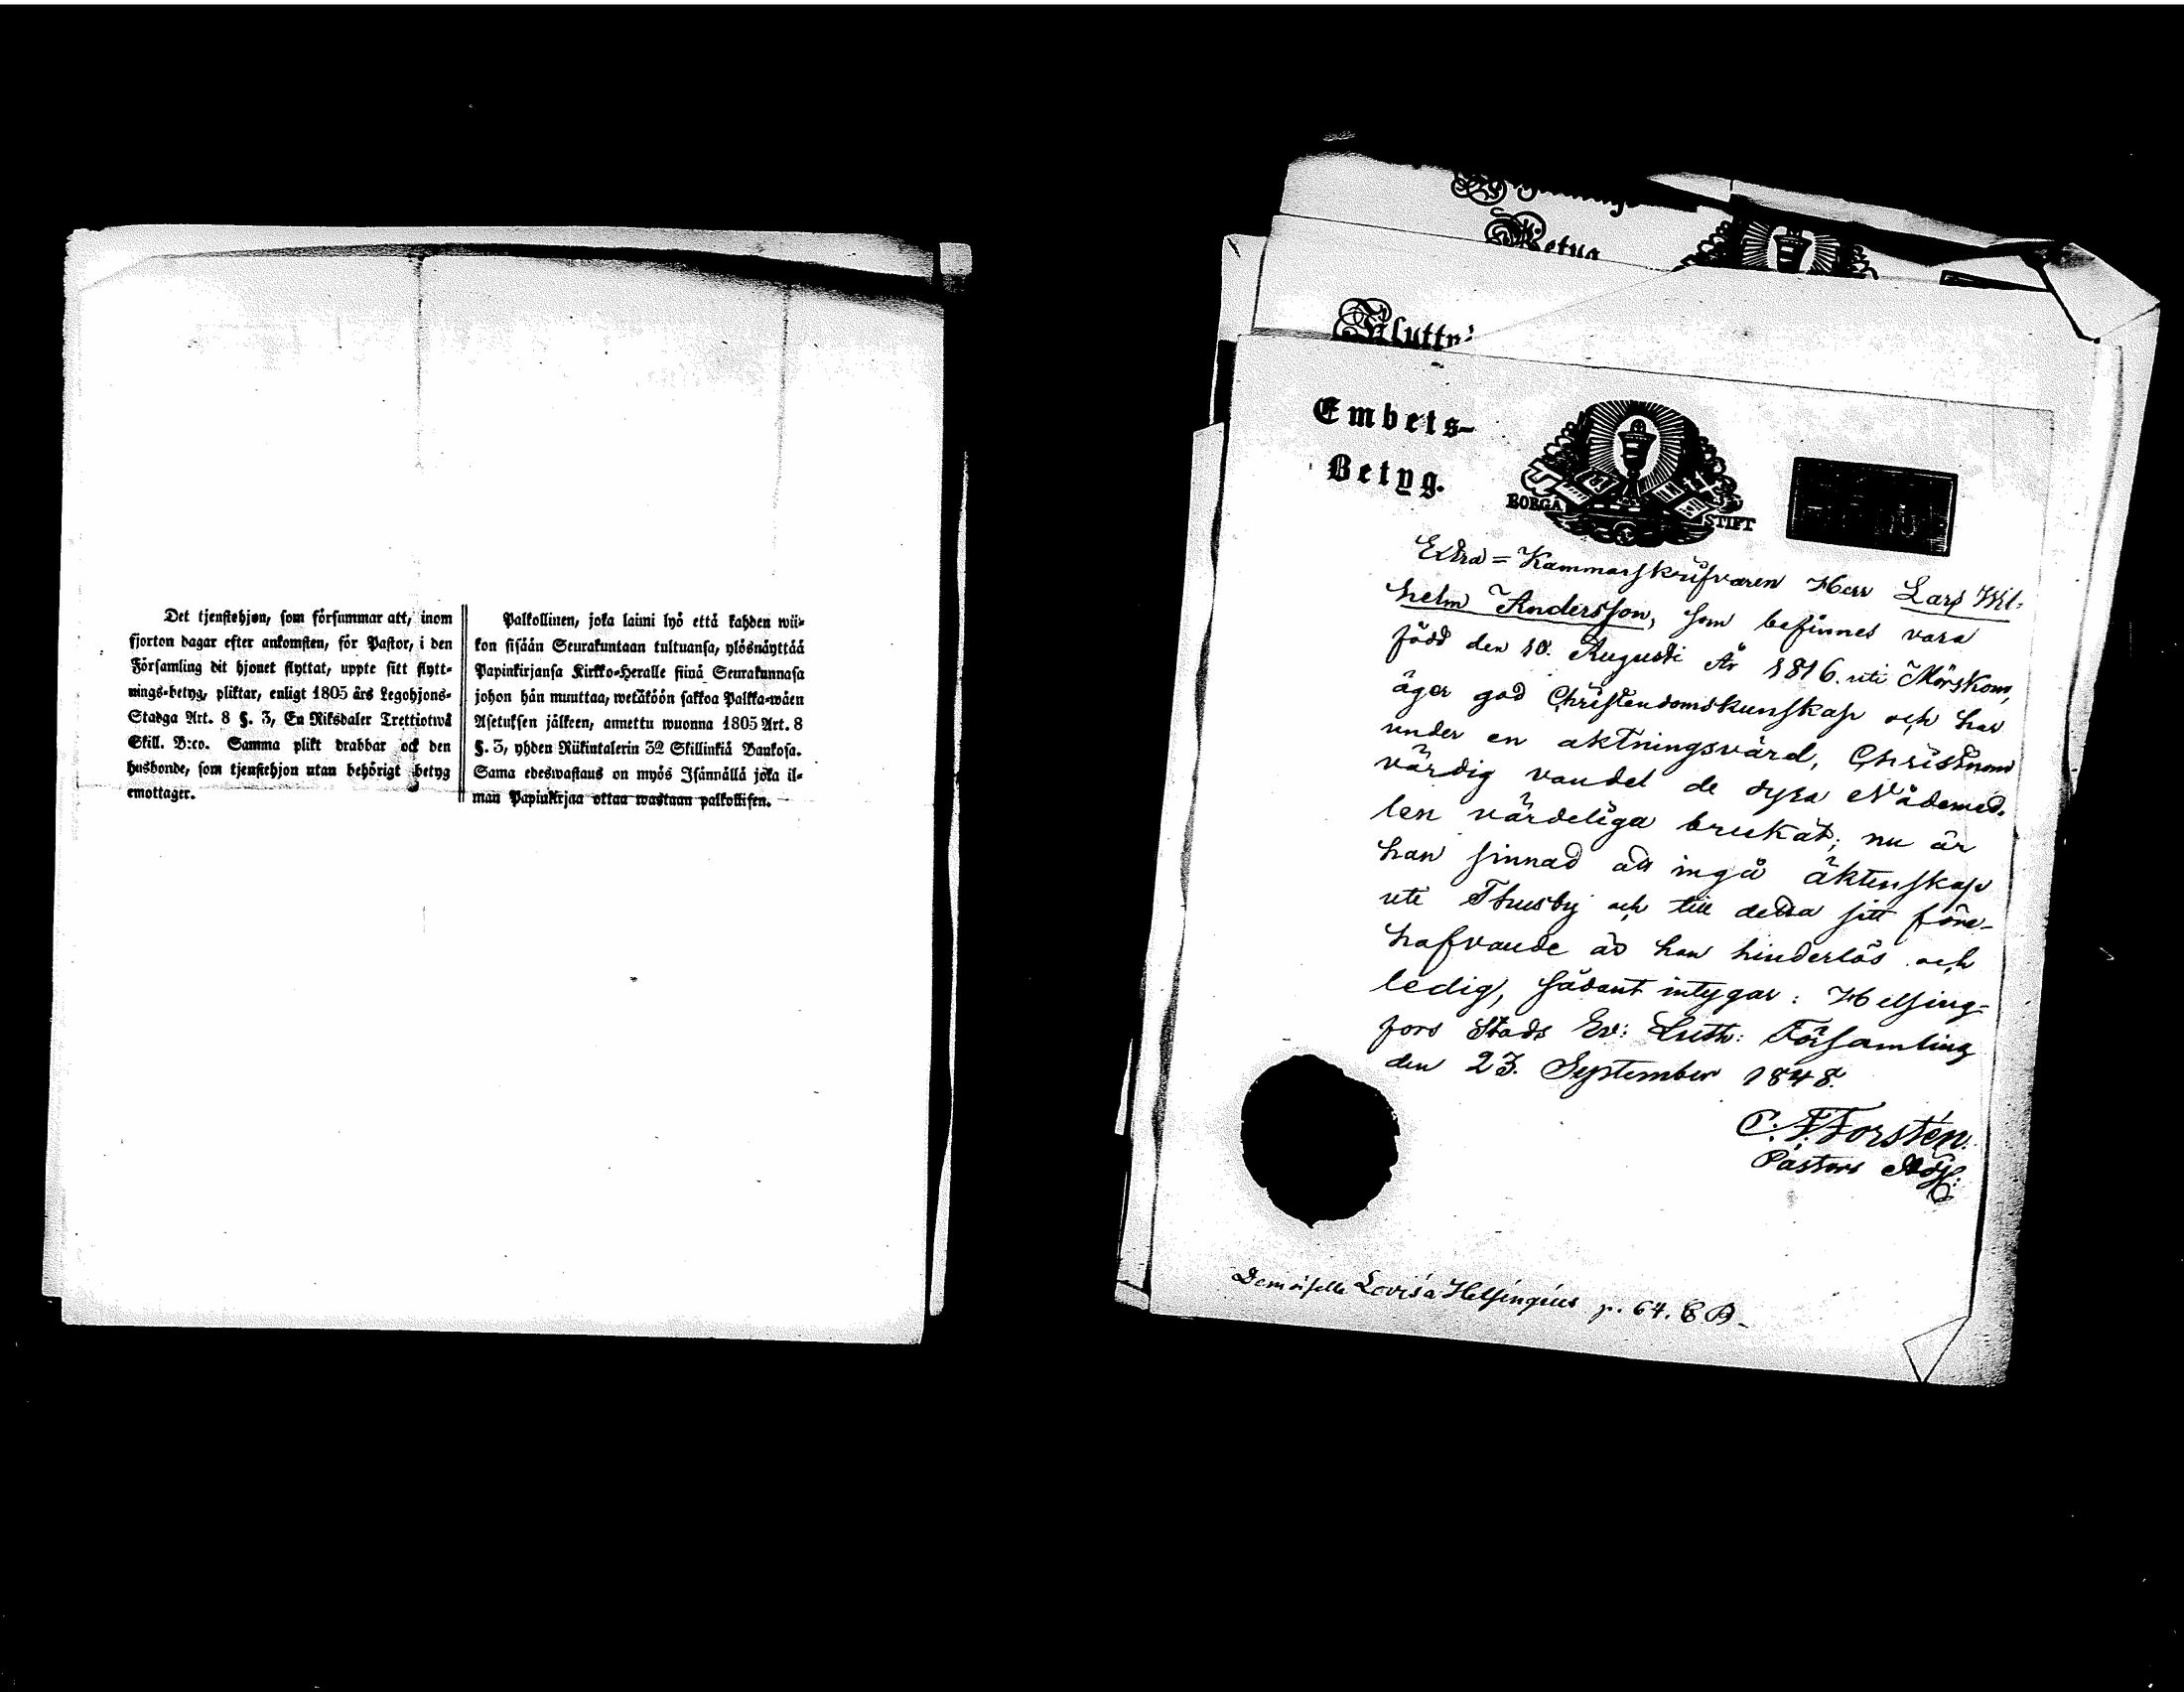 Det tjenstehjon, som försummar att, inom
fjorton dagar efter ankomsten, för Pastor, i den
Församling dit hjonet flyttat, uppte sitt flytt-
nings-betyg, pliktar, enligt 1805 års Legohjons-
Stadga Art. 8 §. 3, En Riksdaler Trettiotwå
Skill. B:co. Samma plikt drabbar ock den
husbonde, som tjenstehjon utan behörigt betyg
emottager.
Palkollinen, joka laimi lyö että kahden wii-
kon sisään Seurakuntaan tultuansa, ylösnäyttää
Papinkirjansa Kirkko-Heralle siinä Seurakunnasa
johon hän muuttaa, wetäköön sakkoa Palkka-wäen
Asetuksen jälkeen, annettu wuonna 1805 Art. 8
§. 3, yhden Riikintalerin 32 Skillinkiä Bankosa.
Sama edeswastaus on myös Isännällä joka il-
man Papinkirjaa ottaa wastaan palkollisen.
Betyg
Flyttn:
Embets-
Betyg.
BORGÅ STIFT
Extra=Kammarskrifvaren Herr Lars Wil-
helm Andersson, som befinnes vara
född den 10. Augusti År 1816. uti Mörskom,
äger god Christendomskunskap och har
under en aktningsvärd, Christnom
värdig vandel de dyra Nådemed-
len värdeliga brukat; nu är
han sinnad att ingå äktenskap
uti Thusby och till detta sitt före-
hafvande är han hinderlös och
ledig, sådant intygar: Helsing-
fors Stads Ev: Luth: Församling
den 23. September 1848.
C. F. Forstén.
Pastors Adj:
Demoiselle Lovisa Helsingius p. 64. C B.